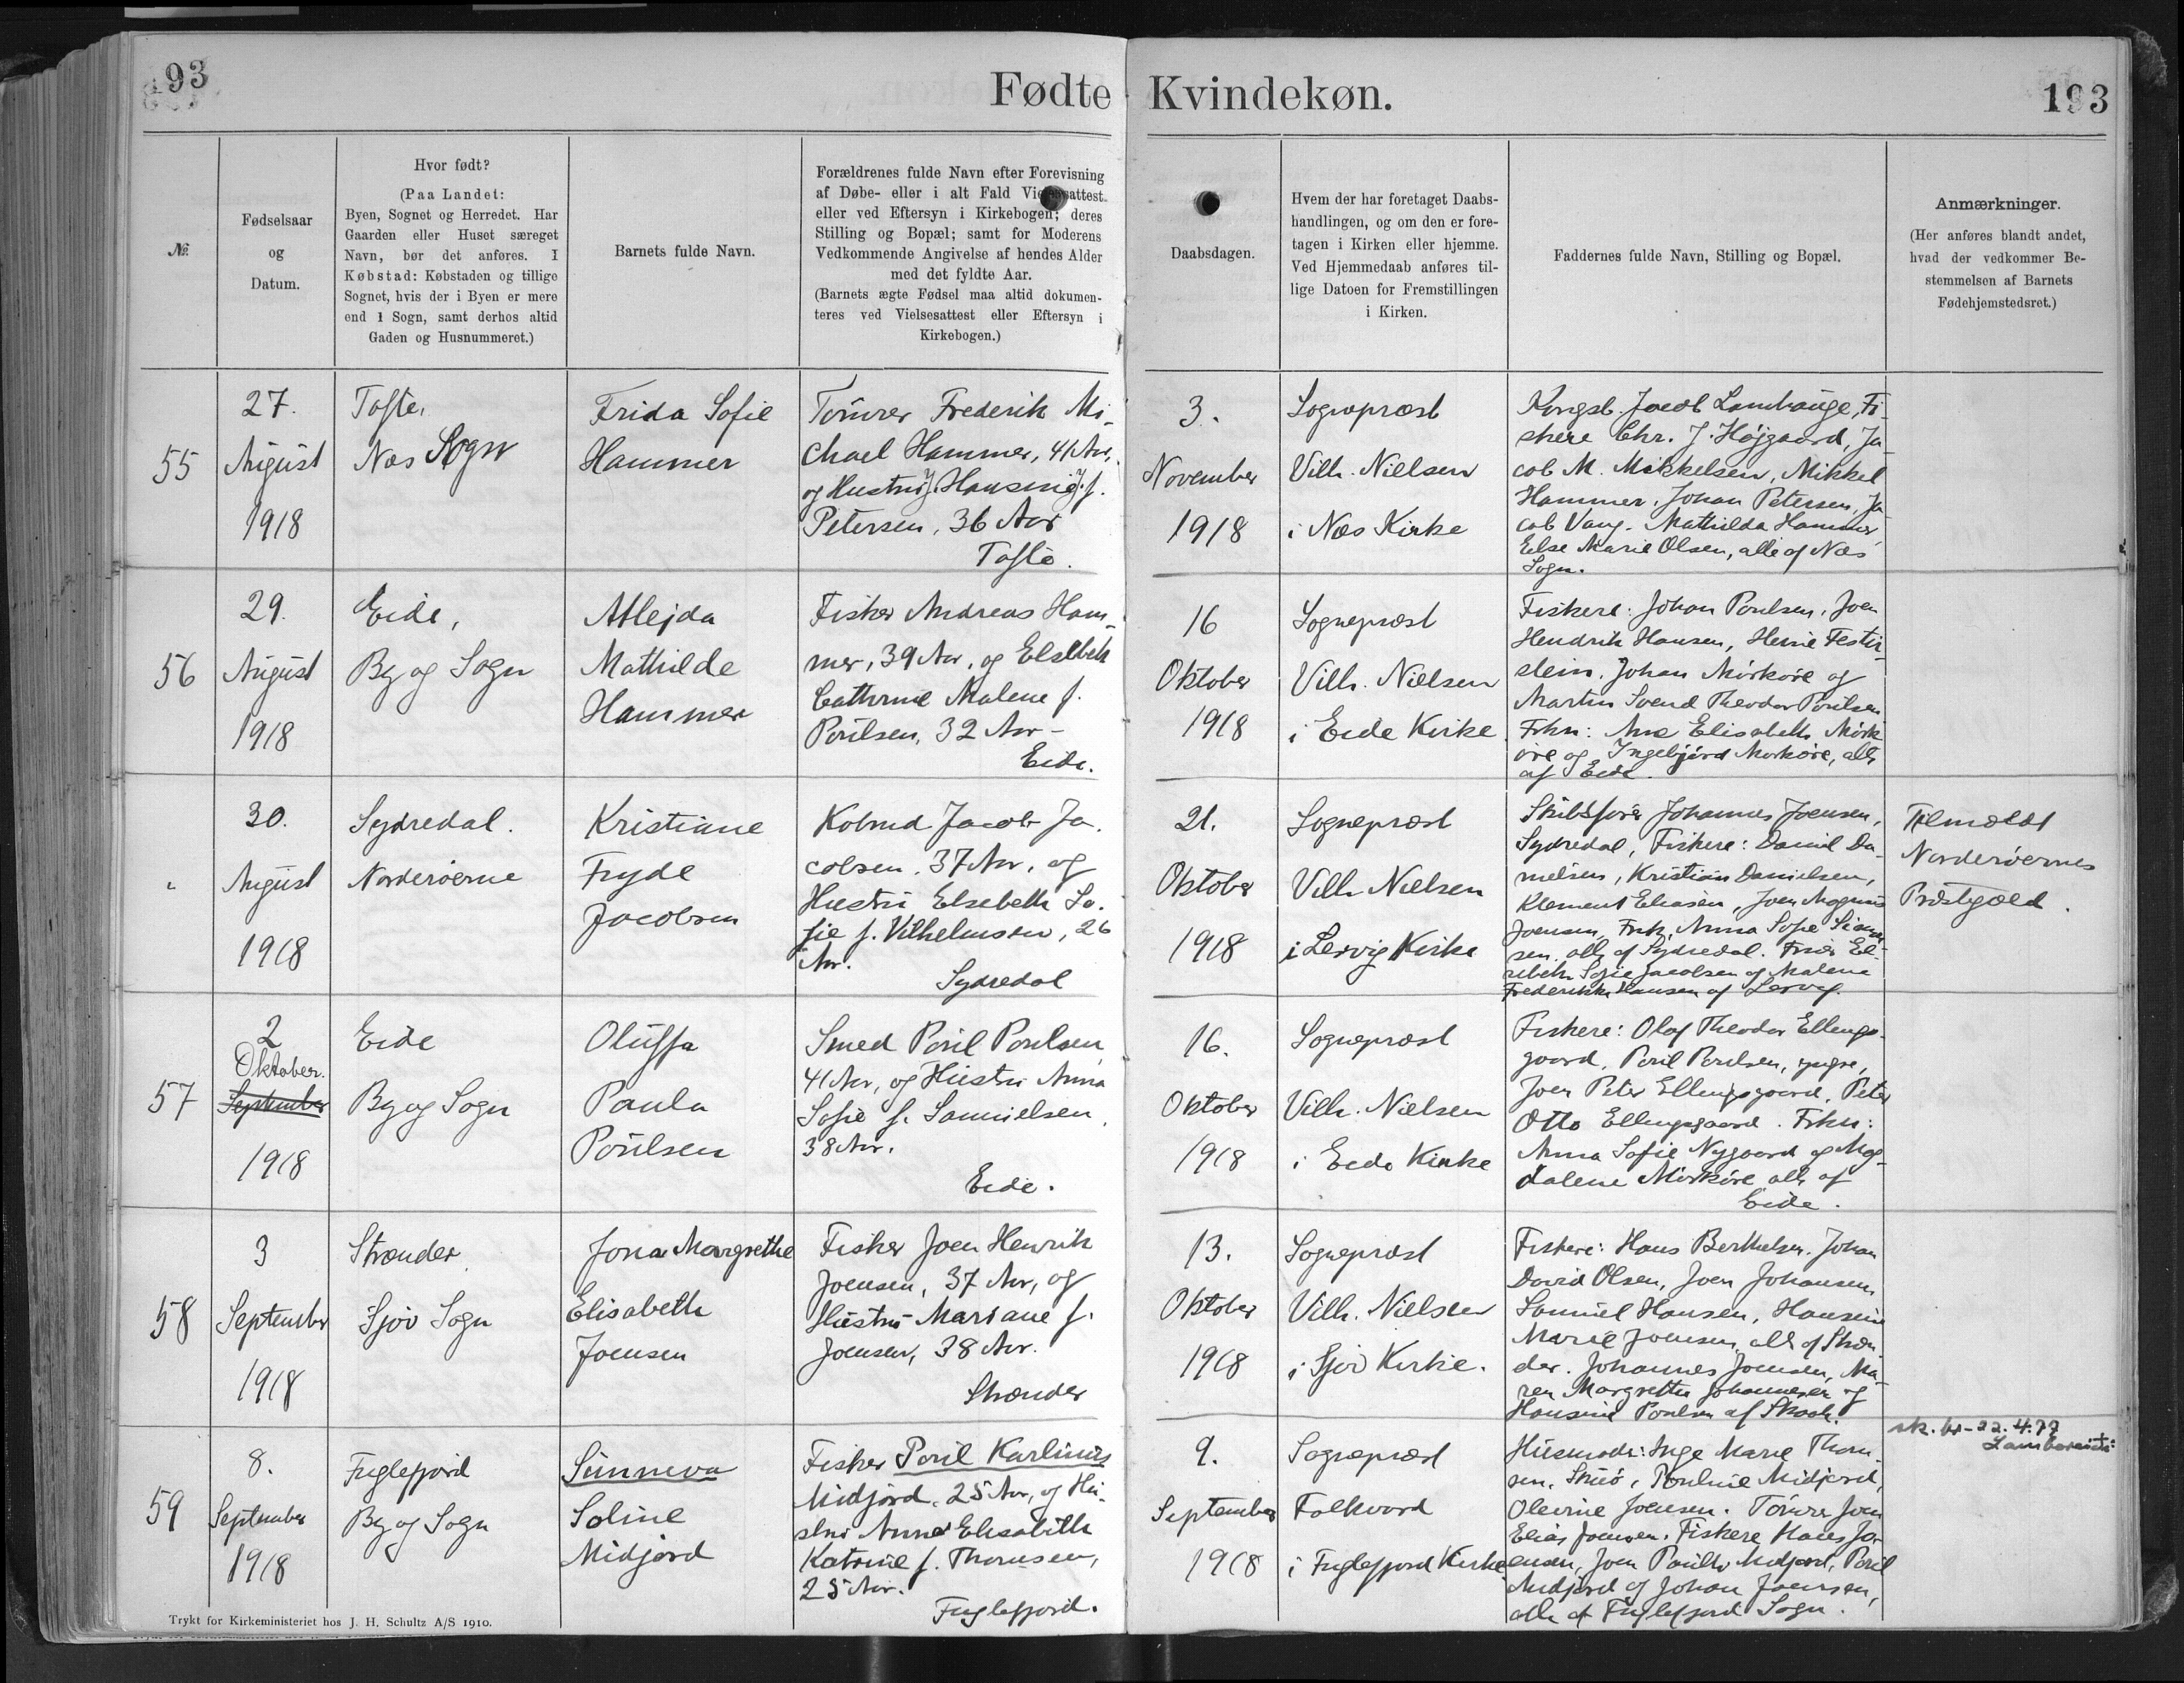 193
Fødte
Kvindekøn.
193
№
Fødselsaar
og
Datum.
Hvor født?
(Paa Landet:
Byen, Sognet og Herredet. Har
Gaarden eller Huset særeget
Navn, bør det anføres. I
Købstad: Købstaden og tillige
Sognet, hvis der i Byen er mere
end 1 Sogn, samt derhos altid
Gaden og Husnummeret.)
Barnets fulde Navn.
Forældrenes fulde Navn efter Forevisning
af Døbe- eller i alt Fald Vielsesattest
eller ved Eftersyn i Kirkebogen; deres
Stilling og Bopæl; samt for Moderens
Vedkommende Angivelse af hendes Alder
med det fyldte Aar.
(Barnets ægte Fødsel maa altid dokumen-
teres ved Vielsesattest eller Eftersyn i
Kirkebogen.)
Daabsdagen.
Hvem der har foretaget Daabs-
handlingen, og om den er fore-
tagen i Kirken eller hjemme.
Ved Hjemmedaab anføres til-
lige Datoen for Fremstillingen
i Kirken.
Faddernes fulde Navn, Stilling og Bopæl.
Anmærkninger.
(Her anføres blandt andet,
hvad der vedkommer Be-
stemmelsen af Barnets
Fødehjemstedsret.)
55
27.
August
1918
Tofte,
Næs Sogn
Frida Sofie
Hammer
Tømrer Frederik Mi-
chael Hammer, 41 Aar,
og Hustru J. Hansine J. f.
Petersen, 36 Aar
Tofte.
3.
November
1918
Sognepræst
Vilh. Nielsen
i Næs Kirke
Kongsb. Jacob Lamhauge, Fi-
skere Chr. J. Højgaard, Ja-
cob M. Mikkelsen, Mikkel
Hammer, Johan Petersen, Ja-
cob Vang. Mathilda Hammer
Else Marie Olsen, alle af Næs
Sogn.
56
29.
August
1918
Eide,
By og Sogn
Atlejda
Mathilde
Hammer
Fisker Andreas Ham-
mer, 39 Aar, og Elsebeth
Cathrine Malene f.
Poulsen, 32 Aar -
Eide.
16
Oktober
1918
Sognepræst
Vilh. Nielsen
i Eide Kirke
Fiskere: Johan Poulsen, Joen
Hendrik Hansen, Festir-
stein, Johan Mörköre og
Martin Svend Theodor Poulsen
Frkn: Ane Elisabeth Mörk-
öre og Ingebjörd Mörköre, alle
af Eide.
"
30.
August
1918
Sydredal.
Norderöerne
Kristiane
Fryde
Jacobsen
Kobmd Jacob Ja-
cobsen, 37 Aar, og
Hustru Elsebeth So-
fie f. Vilhelmsen, 26
Aar.
Sydredal
21.
Oktober
1918
Sognepræst
Vilh Nielsen
i Lervig Kirke
Skibsfører Johannes Joensen,
Sydredal, Fiskere: Daniel Da-
nielsen, Kristian Danielsen,
Klement Eliasen, Joen Magnus
Joensen, Frk. Anna Sofie
sen alle af Sydredal. Fruer El-
sebeth Sofie Jacobsen og Malene
Frederikke Hansen af Lervig.
Tilmeldt
Norderöernes
Præstegæld.
57
2
Oktober.
September
1918
Eide
By og Sogn
Oluffa
Paula
Poulsen
Smed Poul Poulsen
41 Aar, og Hustru Anna
Sofie f. Samuelsen,
38 Aar.
Eide.
16.
Oktober
1918
Sognepræst
Vilh. Nielsen
i Eide Kirke
Fiskere: Olaf Theodor Ellings-
gaard, Poul Poulsen, yngre,
Joen Peter Ellingsgaard, Peter
Otto Ellingsgaard. Frkn:
Anna Sofie Nygaard og Mag-
dalene Mörköre alle af
Eide.
58
3
September
1918
Strænder
Sjov Sogn
Jona Margrethe
Elisabeth
Joensen
Fisker Joen Henrik
Joensen, 37 Aar, og
Hustru Mariane f.
Joensen, 38 Aar.
Strænder
13.
Oktober
1918
Sognepræst
Vilh. Nielsen
i Sjov Kirke.
Fiskere: Hans Berthelsen, Johan
David Olsen, Joen Johansen,
Samuel Hansen, Hansine
Marie Joensen alle af Stræn-
der. Johannes Joensen, Ma-
ren Margrethe Johannesen og
Hansine Poulsen af Skaale.
59
8.
September
1918
Fuglefjord
By og Sogn
Sunneva
Soline
Midjord
Fisker Poul Karlinus
Midjord, 25 Aar, og Hu-
stru Anna Elisabeth
Katrine f. Thomsen,
25 Aar.
Fuglefjord.
9.
September
1918
Sognepræst
Falkvard
i Fuglefjord Kirke
Husmodr: Inge Marie Thom-
sen, Pouline Midjord,
Olevine Joensen. Tömrer Joen
Elias Joensen. Fiskere Hans Jo-
ensen, Joen Paulli Midjord, Poul
Midjord og Johan Joensen,
alle af Fuglefjord Sogn.
Trykt for Kirkeministeriet hos J. H. Schultz A/S 1910.